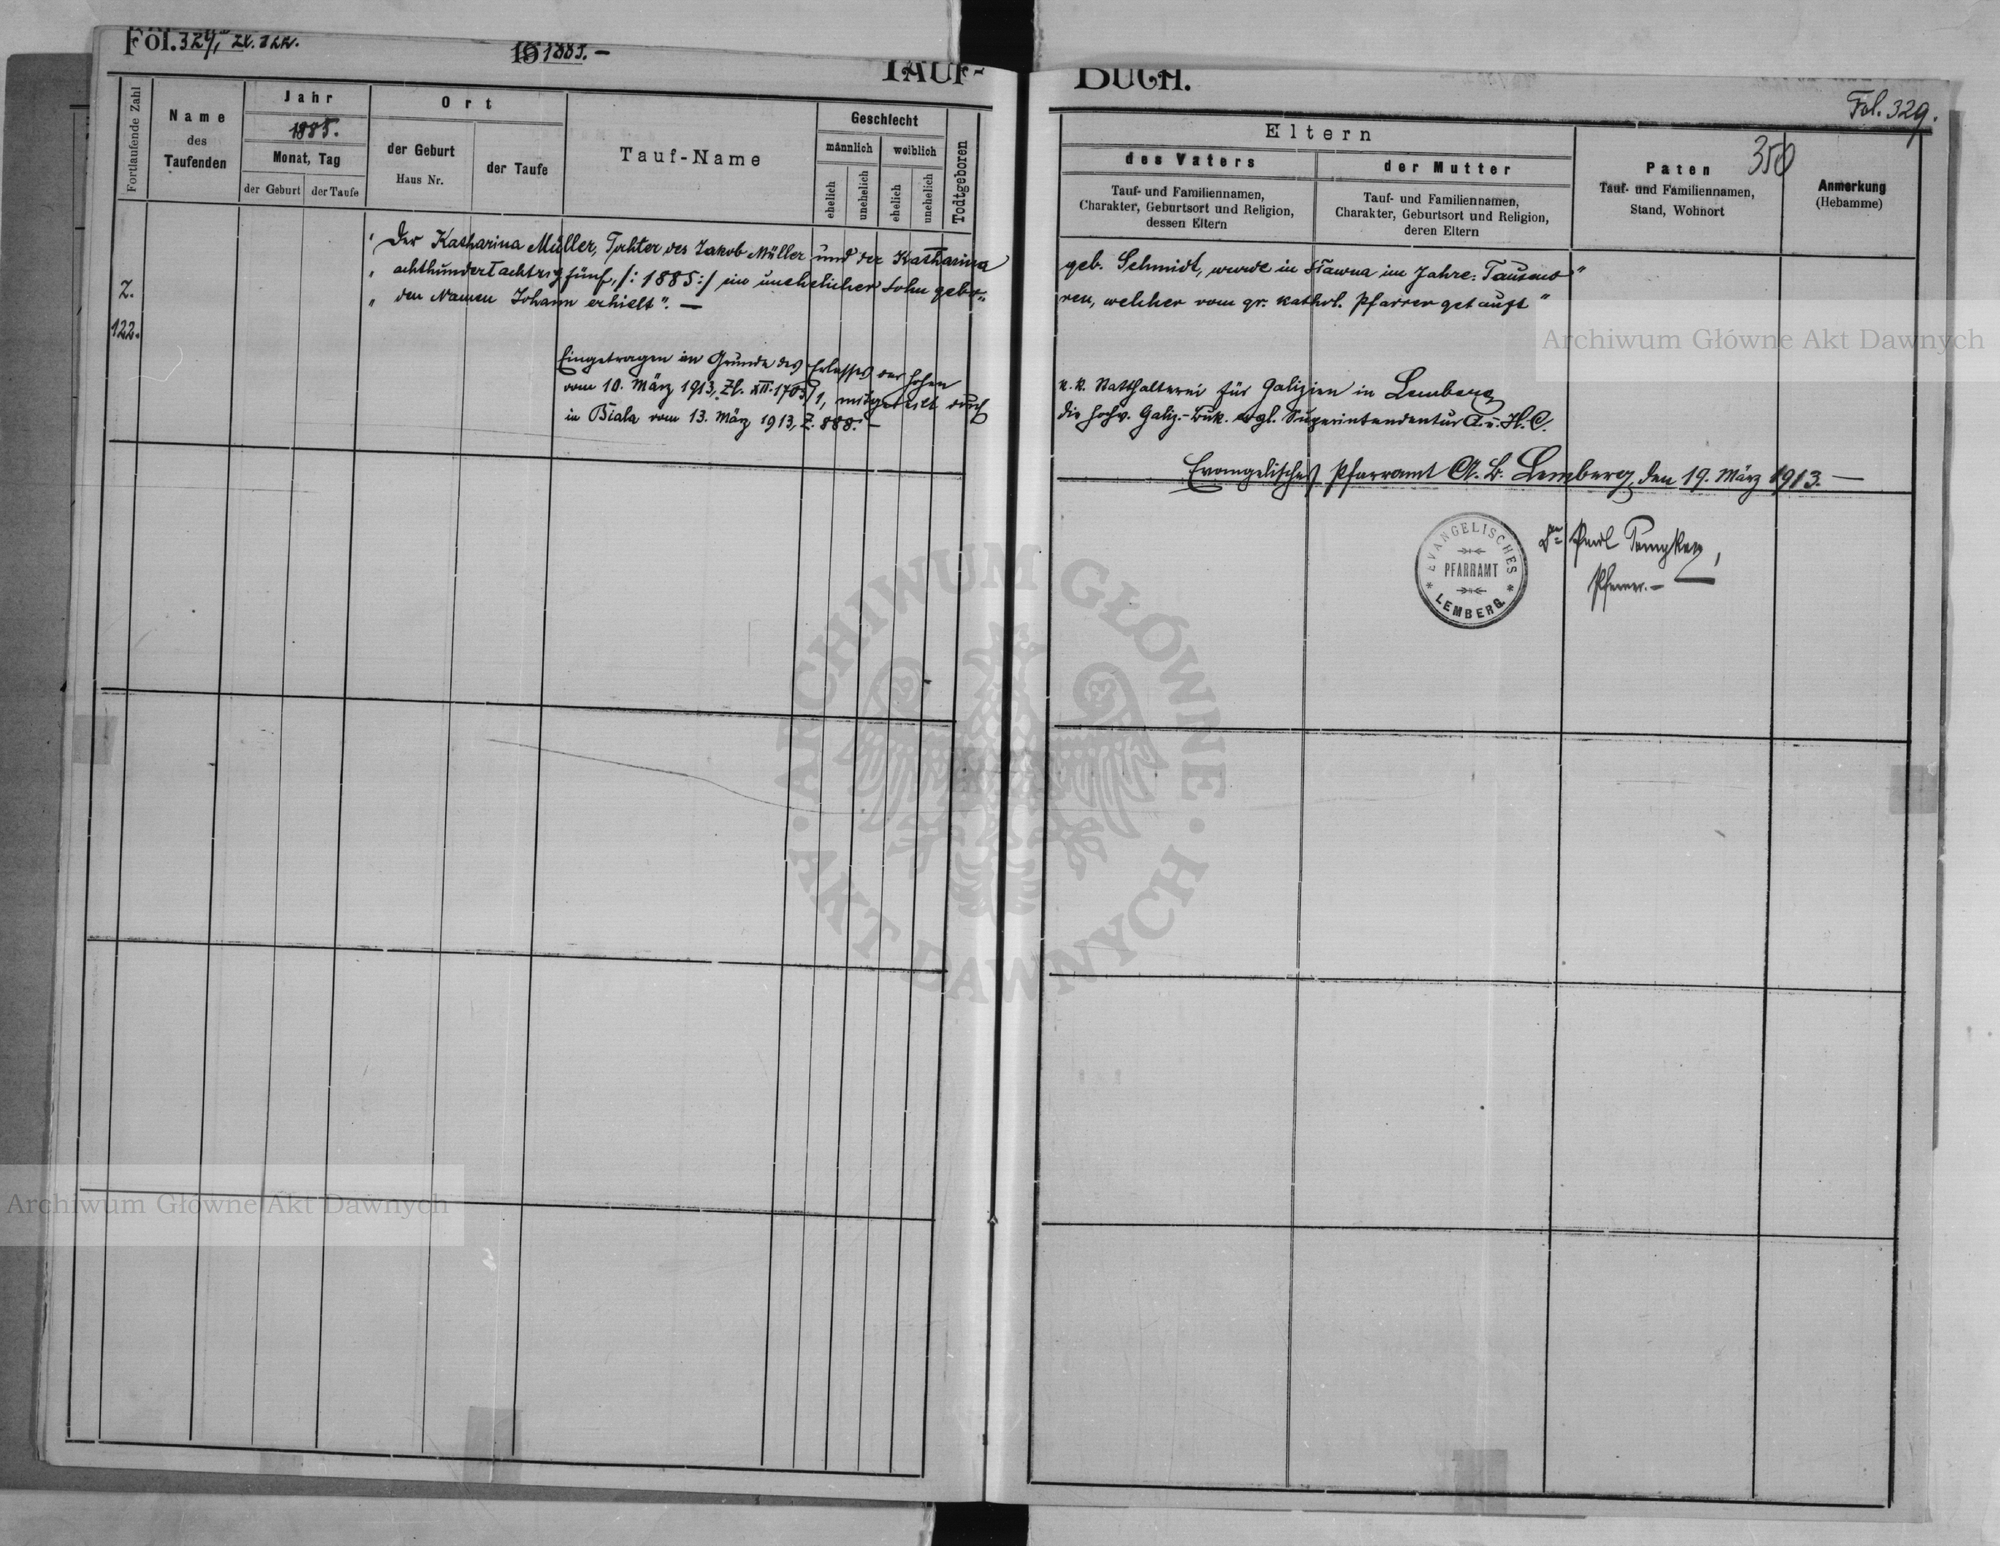 Fol. 329, Zl. 122.
19 1885. –
TAUF-
BUCH.
Fol. 329.
350
Fortlaufende Zahl
Name
des
Taufenden
Jahr
1885.
Monat, Tag
der Geburt
der Taufe
Ort
der Geburt
Haus Nr.
der Taufe
Tauf-Name
Geschlecht
männlich
weiblich
ehelich
unehelich
ehelich
unehelich
Todtgeboren
Eltern
des Vaters
Tauf- und Familiennamen,
Charakter, Geburtsort und Religion,
dessen Eltern
der Mutter
Tauf- und Familiennamen,
Charakter, Geburtsort und Religion,
deren Eltern
Paten
Tauf- und Familiennamen,
Stand, Wohnort
Anmerkung
(Hebamme)
Z.
122.
„Der Katharina Müller, Tochter des Jakob Müller und der Katharina geb. Schmidt, wurde in im Jahre: Tausend"
„achthundertachtzigfünf, /: 1885 :/ ein unehelicher Sohn gebo- ren, welcher vom gr. kathol. Pfarrer getauft"
„den Namen Johann erhielt". –
Eingetragen im Grunde des Erlasses der hohen k. k. Statthalterei für Galizien in Lemberg
vom 10. März 1913, Zl. XII. 1703/1, mitgeteilt durch die hochw. Galiz.-Buk. evgl. Superintendentur A. u. H. C.
in Biala vom 13. März 1913, Z. 888. –
Evangelisches Pfarramt A. B. Lemberg, den 19. März 1913. –
EVANGELISCHES
PFARRAMT
LEMBERG
Dr Paul
Pfarrer. –
Archiwum Główne Akt Dawnych
ARCHIWUM GŁÓWNE
AKT DAWNYCH
Archiwum Główne Akt Dawnych